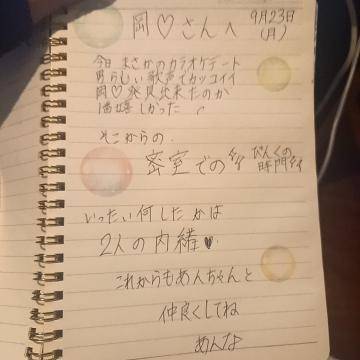 岡♡さんへ
9月23日
(月)
今日まさかのカラオケデート
男らしい歌声でカッコイイ
岡♡発見出来たのが
1番嬉しかった
そこからの、
密室での
ぴんくの
時間
いったい何したかは
2人の内緒♥
これからもあんちゃんと
仲良くしてね
あんな